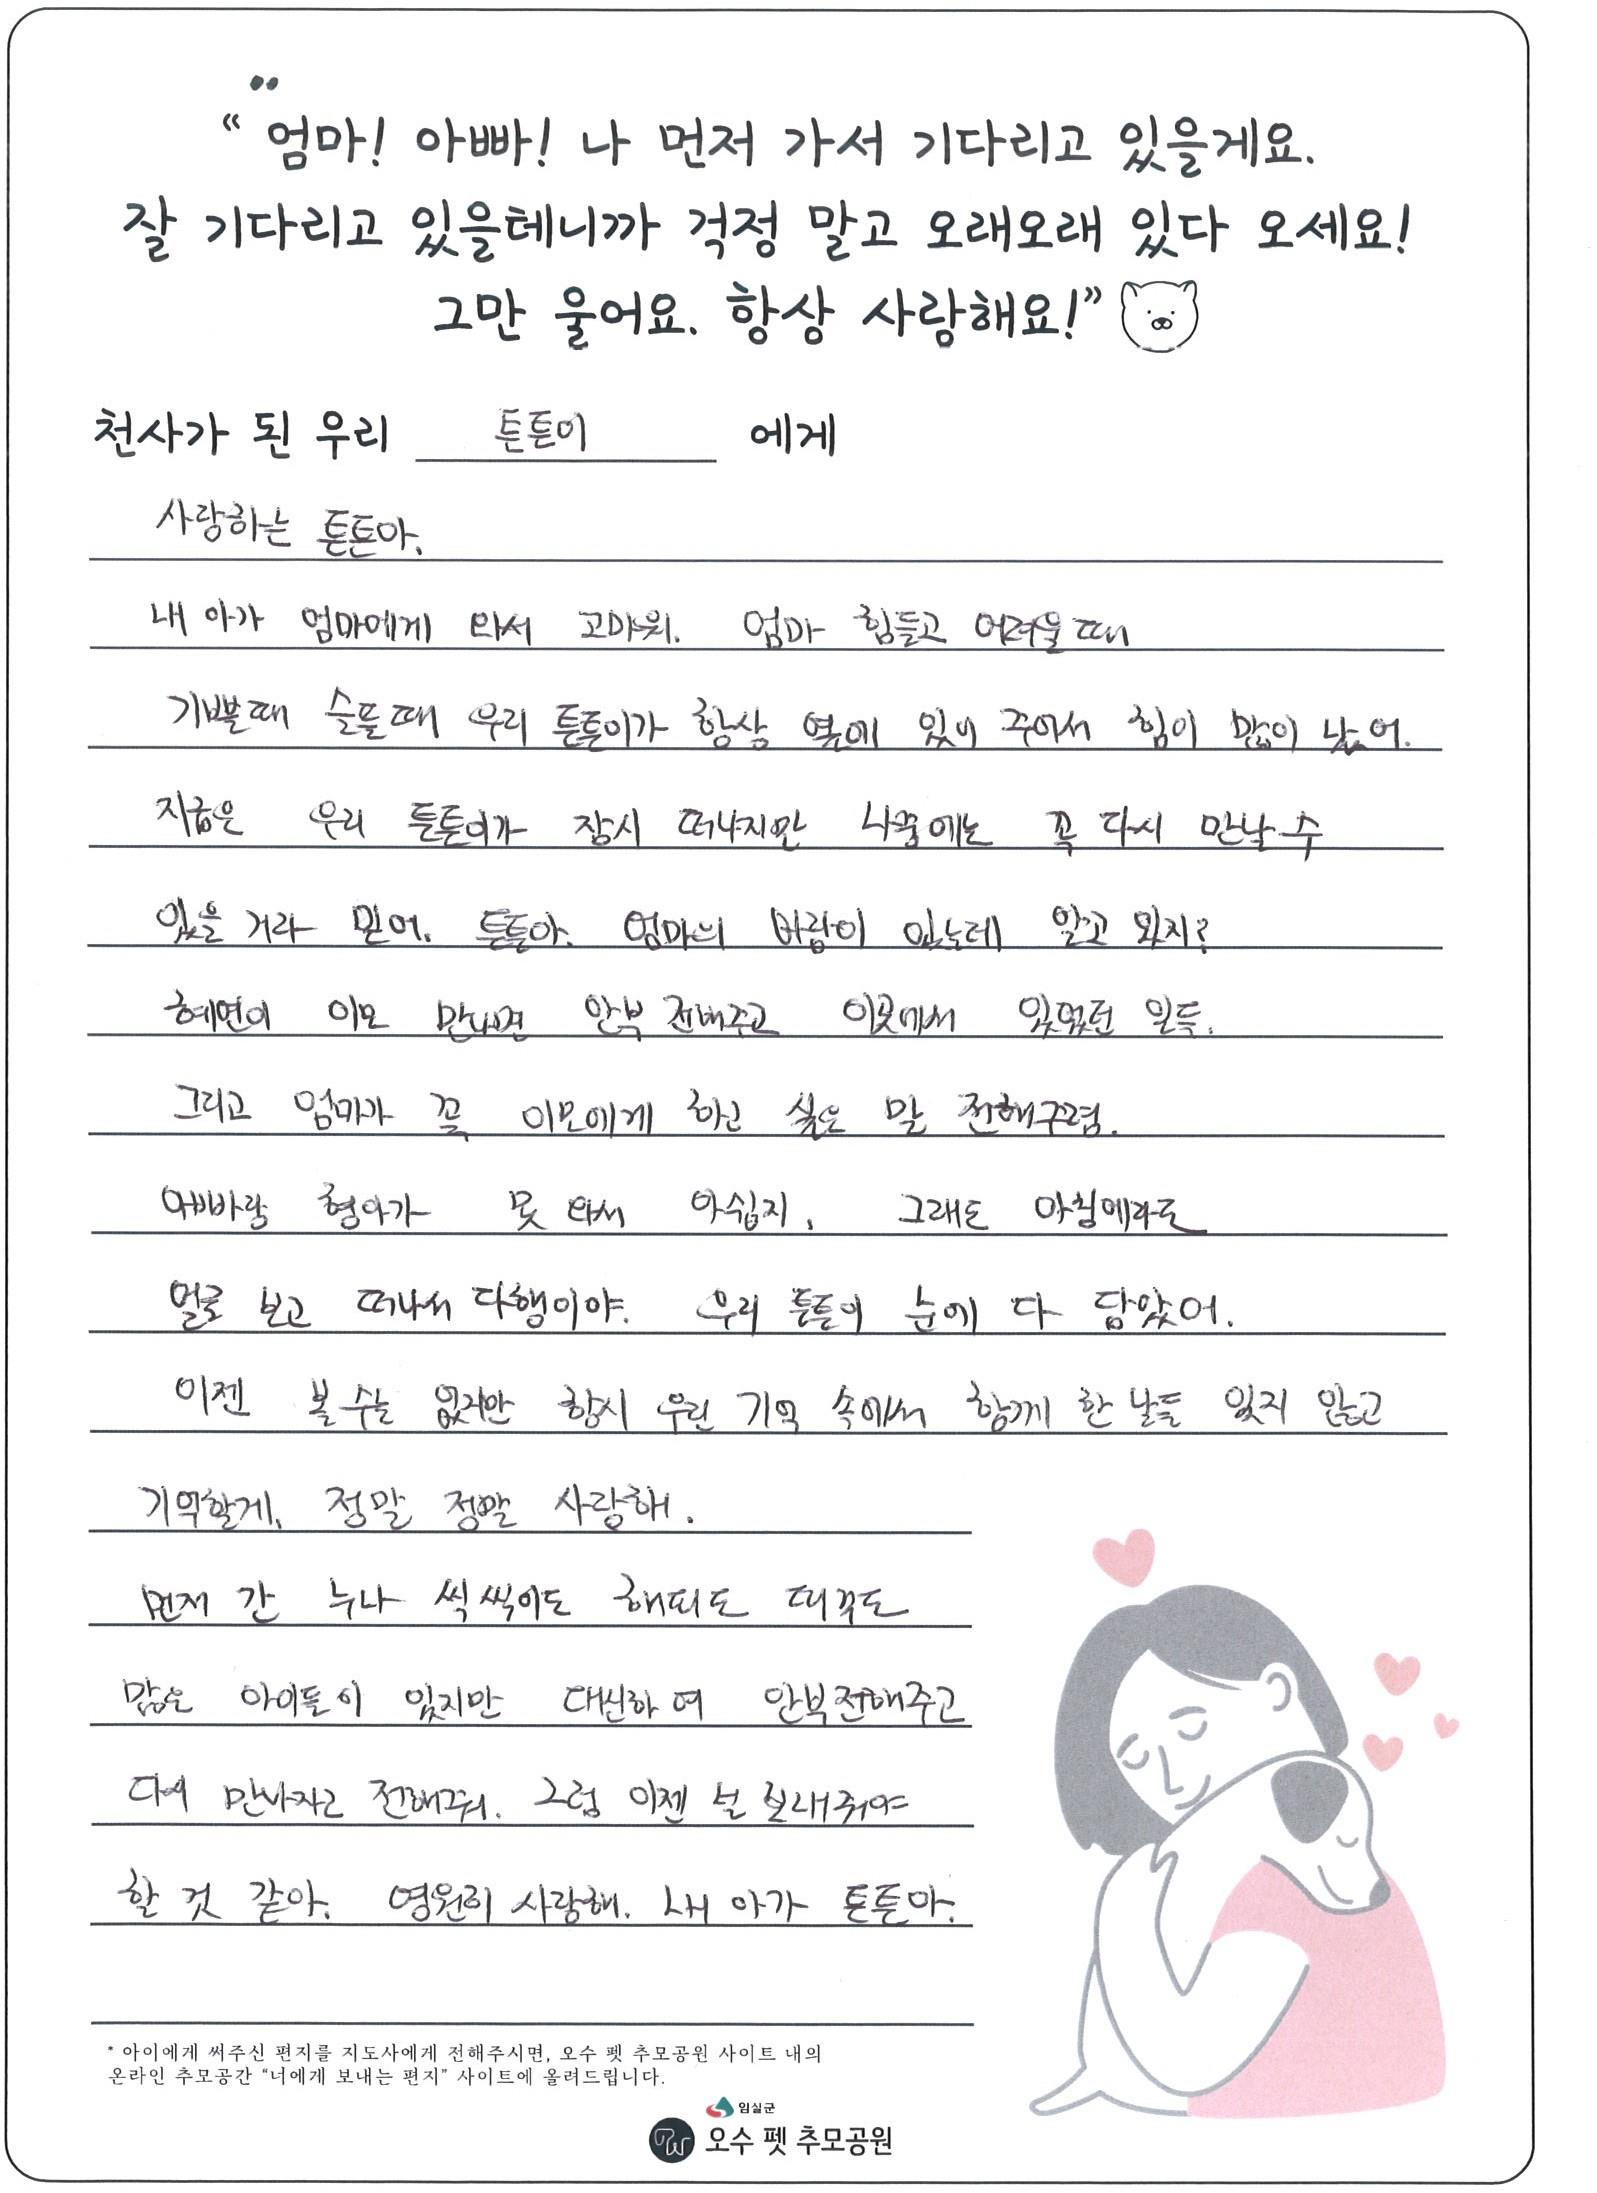 “엄마! 아빠! 나 먼저 가서 기다리고 있을게요.
잘 기다리고 있을테니까 걱정 말고 오래오래 있다 오세요!
그만 울어요. 항상 사랑해요!”
천사가 된 우리 튼튼이 에게
사랑하는 튼튼아.
내 아가 엄마에게 와서 고마워. 엄마 힘들고 어려울 때
기쁠때 슬플때 우리 튼튼이가 항상 옆에 있어 주어서 힘이 많이 났어.
지금은 우리 튼튼이가 잠시 떠나지만 나중에는 꼭 다시 만날 수
있을 거라 믿어. 튼튼아. 엄마의 바람이 있는데 알고 있지?
혜연이 이모 만나면 안부 전해주고 이곳에서 있었던 일들.
그리고 엄마가 꼭 이모에게 하고 싶은 말 전해주렴.
아빠랑 형아가 못 와서 아쉽지. 그래도 아침에라도
얼굴 보고 떠나서 다행이야. 우리 튼튼이 눈에 다 담았어.
이젠 볼 수는 없지만 항시 우린 기억 속에서 함께 한 날들 잊지 않고
기억할게. 정말 정말 사랑해.
먼저 간 누나 씩씩이도 해피도 띠꾸도
많은 아이들이 있지만 대신하여 안부전해주고
다시 만나자고 전해줘. 그럼 이젠 널 보내줘야
할 것 같아. 영원히 사랑해. 내 아가 튼튼아.
* 아이에게 써주신 편지를 지도사에게 전해주시면, 오수 펫 추모공원 사이트 내의
온라인 추모공간 “너에게 보내는 편지” 사이트에 올려드립니다.
임실군
오수 펫 추모공원